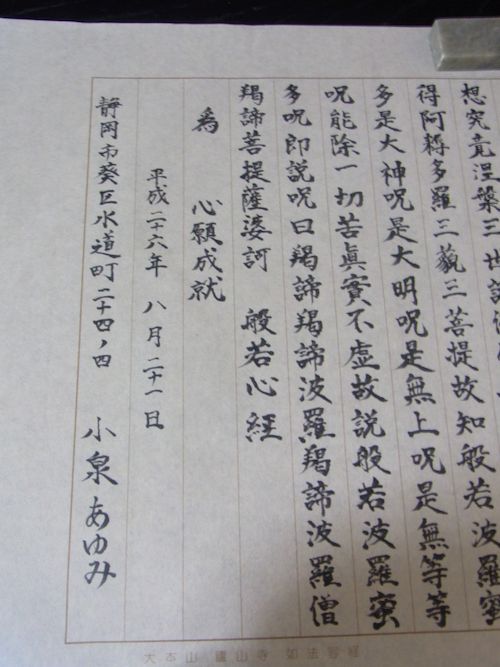 想究竟涅槃三世諸
得阿耨多羅三藐三菩提故知般若波羅蜜
多是大神呪是大明呪是無上呪是無等等
呪能除一切苦眞實不虚故説般若波羅蜜
多呪即説呪曰羯諦羯諦波羅羯諦波羅僧
羯諦菩提薩婆訶　般若心経
為　心願成就
平成二十六年　八月二十一日
静岡市葵区水道町二十四ノ四　小泉あゆみ
大本山 廬山寺 如法写経